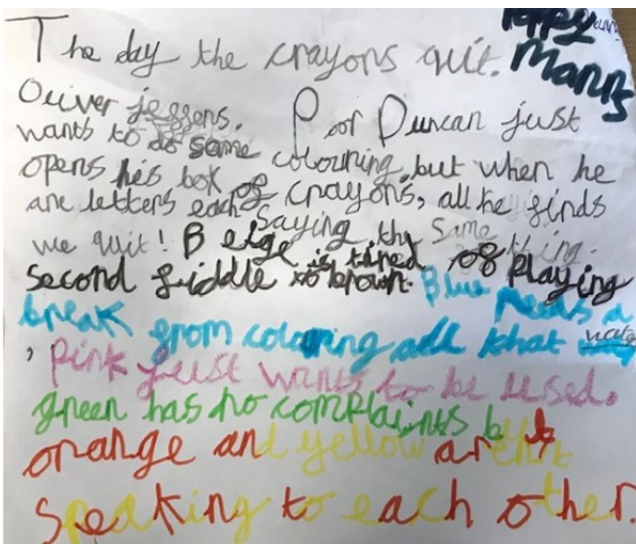 The day the crayons quit.
Poppy
Manns
Oliver jeffers. Poor Duncan just
wants to do some colouring, but when he
opens his box of crayons, all he finds
are letters each saying the same thing.
we quit! Beige is tired of playing
second fiddle to brown. Blue needs a
break from colouring all that water
, Pink just wants to be used.
green has no complaints but
orange and yellow arent
speaking to each other.